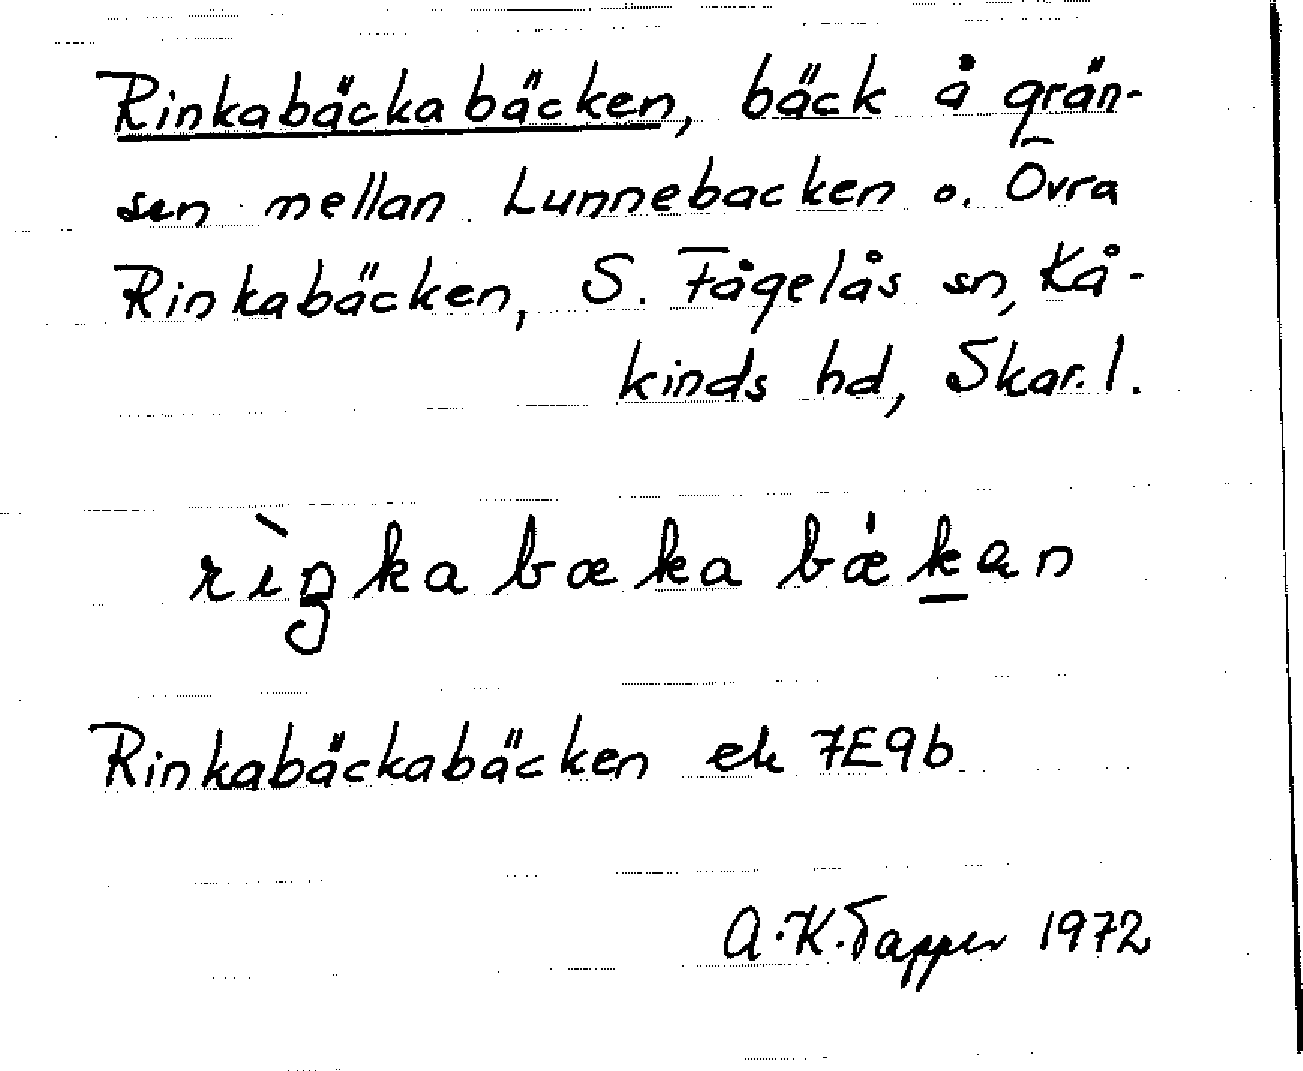 Rinkabäckabäcken, bäck å grän-
sen mellan Lunnebacken o. Övra
Rinkabäcken, S. Fågelås sn, Kå-
kinds hd, Skar. l.
rìŋkabækabǽkan
Rinkabäckabäcken ek 7E9b
A.K. Tapper 1972